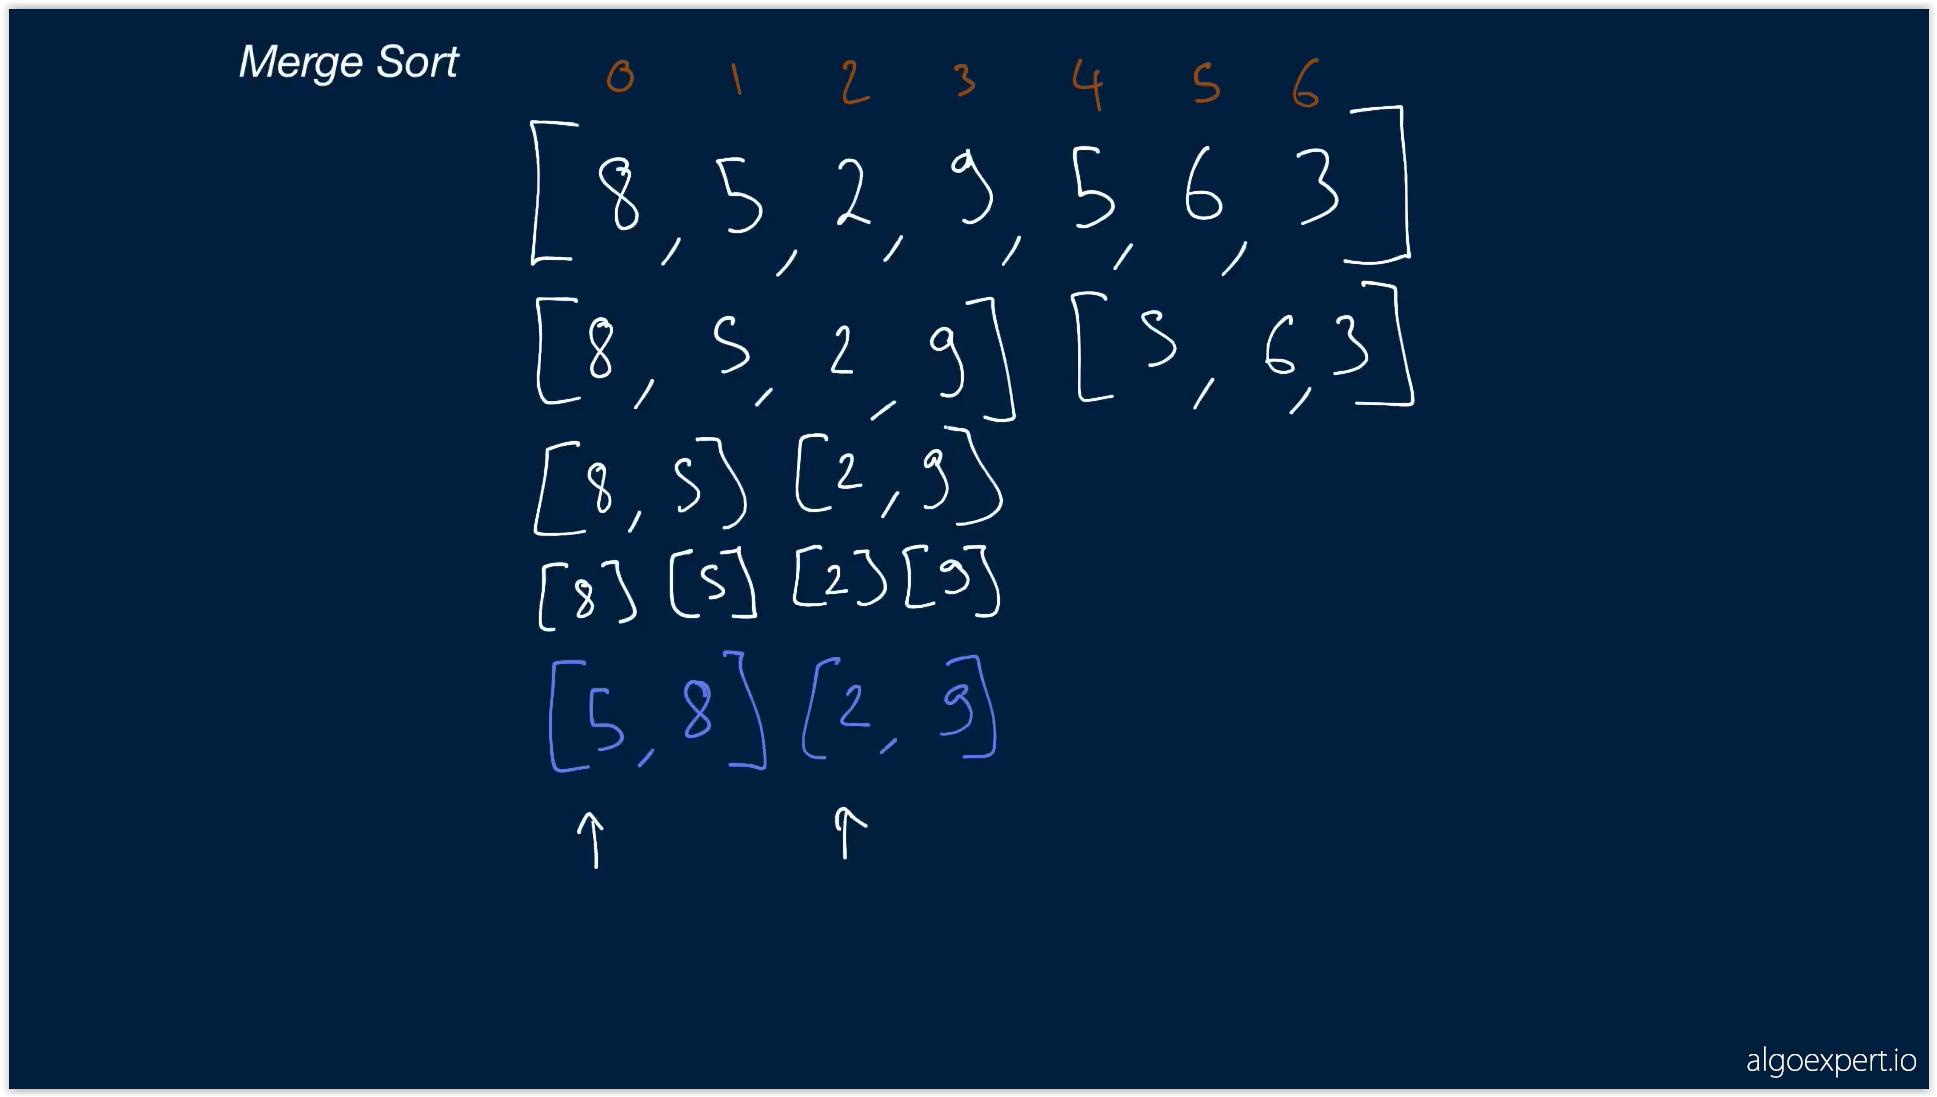 Merge Sort
0 1 2 3 4 5 6
[8, 5, 2, 9, 5, 6, 3]
[8, 5, 2, 9] [5, 6, 3]
[8, 5] [2, 9]
[8] [5] [2] [9]
[5, 8] [2, 9]
↑ ↑
algoexpert.io